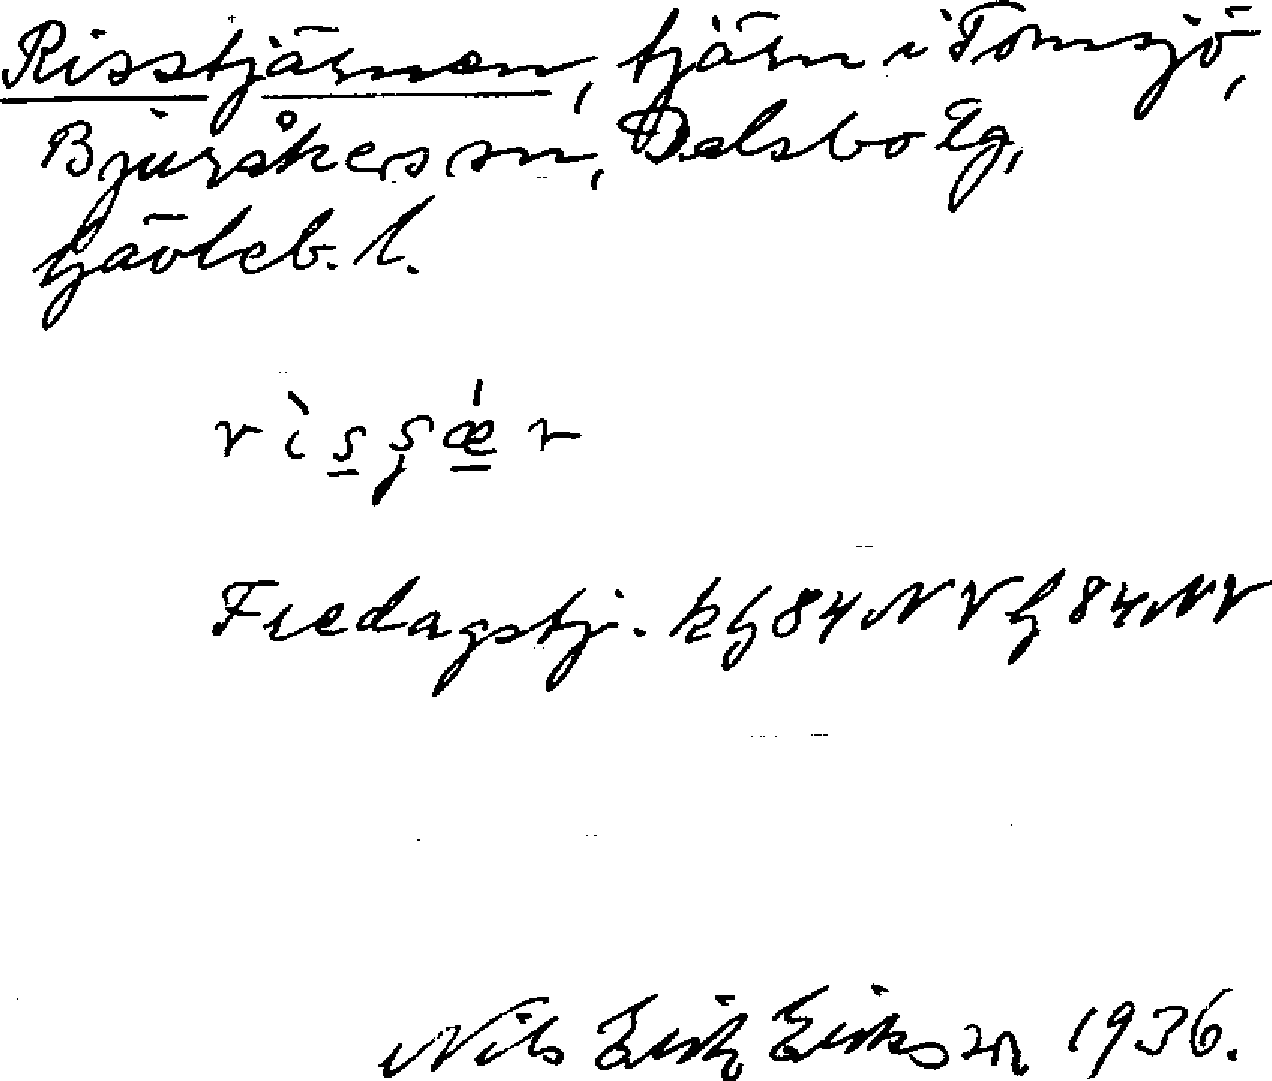 Risstjärnen, tjärn i Tomsjö,
Bjuråkers sn, Delsbo tg,
Gävleb. l.
Fredagstj. kg 84 NV g 84 NV
Nils Erik Eriksson 1936.